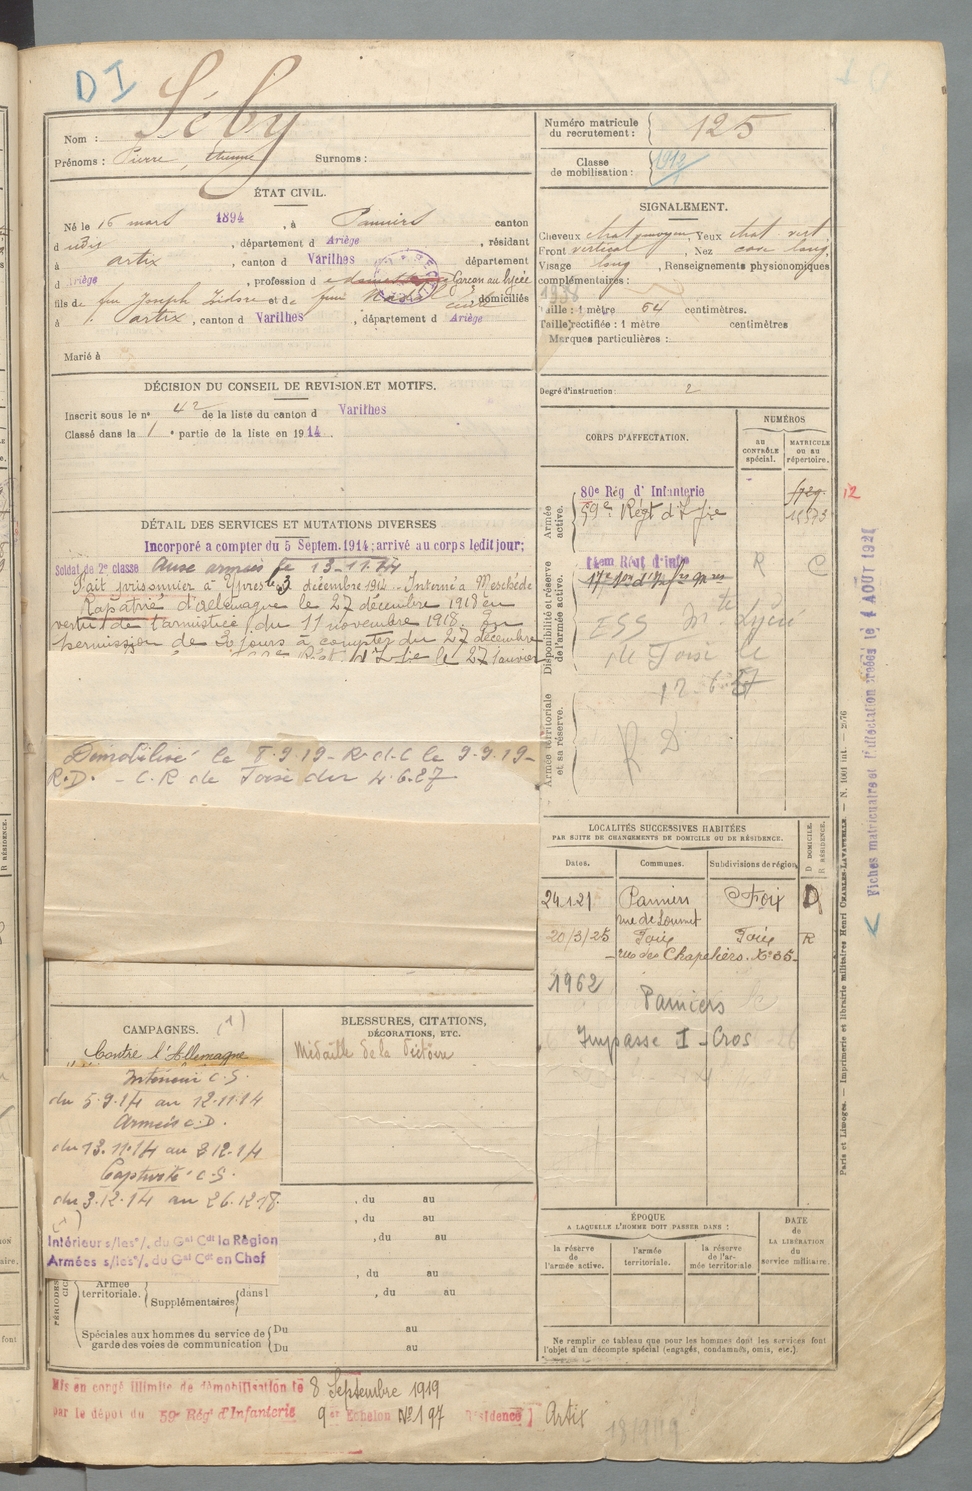 DI
Séby
Nom :
Prénoms : Pierre, Etienne Surnoms :
Numéro matricule
du recrutement : 125
Classe
de mobilisation : 1912
ÉTAT CIVIL.
Né le 15 mars 1894, à Pamiers canton
d udy, département d Ariège, résidant
à Artix, canton d Varilhes département
d Ariège, profession d Garçon au lycée
fils de feu Joseph Isidore et de feue domiciliés
à Artix, canton d Varilhes, département d Ariège
Marié à
SIGNALEMENT.
Cheveux chat moyen, Yeux chat vert
Front vertical, Nez cave long,
Visage long, Renseignements physionomiques
complémentaires :
1938
Taille : 1 mètre 54 centimètres.
Taille rectifiée : 1 mètre centimètres
Marques particulières :
Degré d'instruction : 2
DÉCISION DU CONSEIL DE REVISION ET MOTIFS.
Inscrit sous le n° 42 de la liste du canton d Varilhes
Classé dans la 1 e partie de la liste en 1914.
DÉTAIL DES SERVICES ET MUTATIONS DIVERSES
Incorporé a compter du 5 Septem. 1914; arrivé au corps ledit jour;
Soldat de 2e classe Aux armées le 13-11-14
Fait prisonnier à Ypres le 3 décembre 1914. Interné à Meschede
Rapatrié d'Allemagne le 27 décembre 1918 en
vertu de l'armistice du 11 novembre 1918. En
permission de 30 jours à compter du 27 décembre
Régt d'Infie le 27 Janvier
Démobilisé le 8-9-19- R.d.C le 9-9-19-
R.D. - C.R de Foix du 4.6.27
CORPS D'AFFECTATION.
NUMÉROS
au
CONTRÔLE
spécial.
MATRICULE
ou au
répertoire.
Armée
active.
80e Rég d' Infanterie
59e Régt d'Infie
12
Disponibilité et réserve
de l'armée active.
14em Régt d'infie
R C
ESS Lycée
de Foix le
12-6-27
Armée territoriale
et sa réserve.
R D
LOCALITÉS SUCCESSIVES HABITÉES
PAR SUITE DE CHANGEMENTS DE DOMICILE OU DE RÉSIDENCE.
D DOMICILE.
R RÉSIDENCE.
Dates. Communes. Subdivisions de région
24121 Pamiers Foix D
rue de Loumet
20/3/25 Foix Foix R
rue des Chapeliers. No 35
1962 Pamiers
Impasse I_Cros
CAMPAGNES. (1)
Contre l'Allemagne
Intérieur C.S.
du 5.9.14 au 12.11.14
Armées C.D.
du 13.11.14 au 3 12.14
Captivité C.S.
du 3.12.14 au 26.12.18
(1)
Intérieur s/les o/. du Gal Cdt la Région
Armées s/les o/. du Gal Cdt en Chef
BLESSURES, CITATIONS,
DÉCORATIONS, ETC.
Médaille de la Victoire
, du au
, du au
, du au
, du au
PÉRIODES
Armée
territoriale.
Supplémentaires dans l , du au
Spéciales aux hommes du service de
garde des voies de communication
Du au
Du au
ÉPOQUE
A LAQUELLE L'HOMME DOIT PASSER DANS :
la réserve
de l'armée active.
l'armée
territoriale.
la réserve
de l'ar-
mée territoriale
DATE
de
LA LIBÉRATION
du
service militaire.
Ne remplir ce tableau que pour les hommes dont les services font
l'objet d'un décompte spécial (engagés, condamnés, omis, etc.).
Mis en congé illimité de démobilisation le 8 Septembre 1919
par le dépôt du 59e Rég' d'Infanterie 9er Echelon No 197 Résidence Artix
Fiches matriculaires et d'affectation créées le 4 AOUT 1921
Paris et Limoges. — Imprimerie et librairie militaires Henri CHARLES-LAVAUZELLE. — N. 1001 int. — 2576